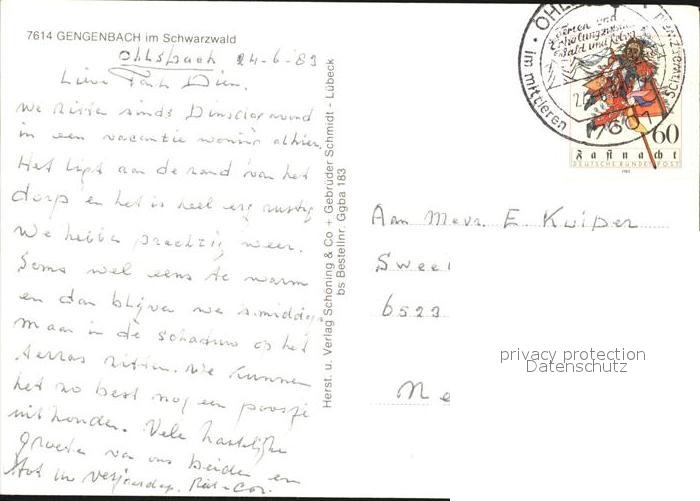 7614 GENGENBACH im Schwarzwald
Ohlsbach 24-6-83
Lieve Tante Dien.
We zitten sinds Dinsdagavond
in een vacantie woning alhier.
Het ligt aan de rand van het
dorp en het is heel erg rustig
We hebben prachtig weer.
Soms wel eens te warm
en dan blijven we s.middags
maar in de schaduw op het
terras zitten. We kunnen
het zo best nog een poosje
uithouden. Vele hartelijke
groeten van ons beiden en
tot uw verjaardag. Riet + Cor.
Herst. u. Verlag Schöning & Co + Gebrüder Schmidt - Lübeck
bs Bestellnr. Ggba 183
OHLSBACH
Ferien und
Erholung zwischen
Wald und Reben
im mittleren Schwarzwald
7601
60
Fastnacht
DEUTSCHE BUNDESPOST
1983
Aan Mevr. E Kuiper
Sweel
6523
Ne
privacy protection
Datenschutz